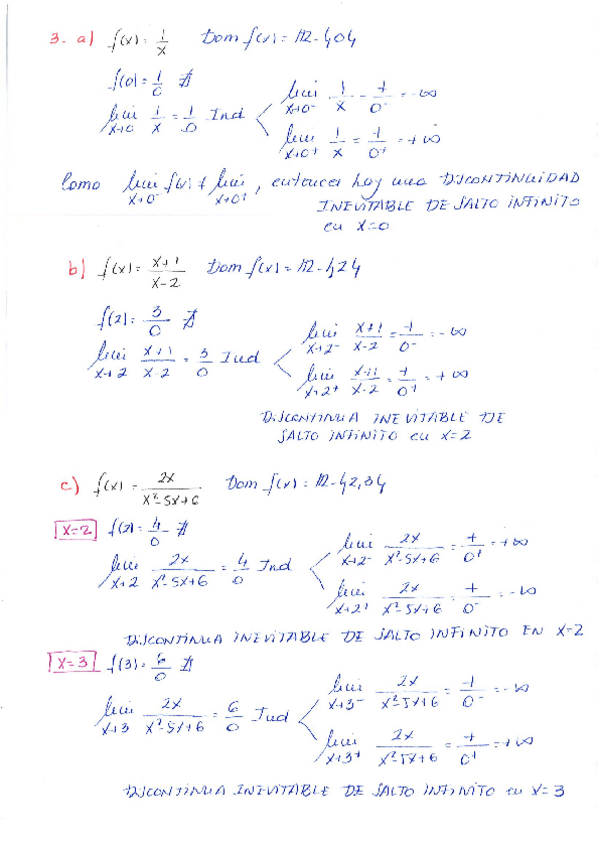 3. a) f(x) = 1/x Dom f(x) = ℝ - {0}
f(0) = 1/0 ∄
lim x→0 1/x = 1/0 Ind
lim x→0⁻ 1/x = +/0⁻ = -∞
lim x→0⁺ 1/x = +/0⁺ = +∞
Como lim x→0⁻ f(x) ≠ lim x→0⁺, entonces hay una DISCONTINUIDAD
INEVITABLE DE SALTO INFINITO
en x=0
b) f(x) = x+1/x-2 Dom f(x) = ℝ - {2}
f(2) = 3/0 ∄
lim x→2 x+1/x-2 = 3/0 Ind
lim x→2⁻ x+1/x-2 = +/0⁻ = -∞
lim x→2⁺ x+1/x-2 = +/0⁺ = +∞
DISCONTINUA INEVITABLE DE
SALTO INFINITO en x=2
c) f(x) = 2x/x²-5x+6 Dom f(x) = ℝ - {2,3}
x=2 f(2) = 4/0 ∄
lim x→2 2x/x²-5x+6 = 4/0 Ind
lim x→2⁻ 2x/x²-5x+6 = +/0⁺ = +∞
lim x→2⁺ 2x/x²-5x+6 = +/0⁻ = -∞
DISCONTINUA INEVITABLE DE SALTO INFINITO EN x=2
x=3 f(3) = 6/0 ∄
lim x→3 2x/x²-5x+6 = 6/0 Ind
lim x→3⁻ 2x/x²-5x+6 = +/0⁻ = -∞
lim x→3⁺ 2x/x²-5x+6 = +/0⁺ = +∞
DISCONTINUA INEVITABLE DE SALTO INFINITO en x=3